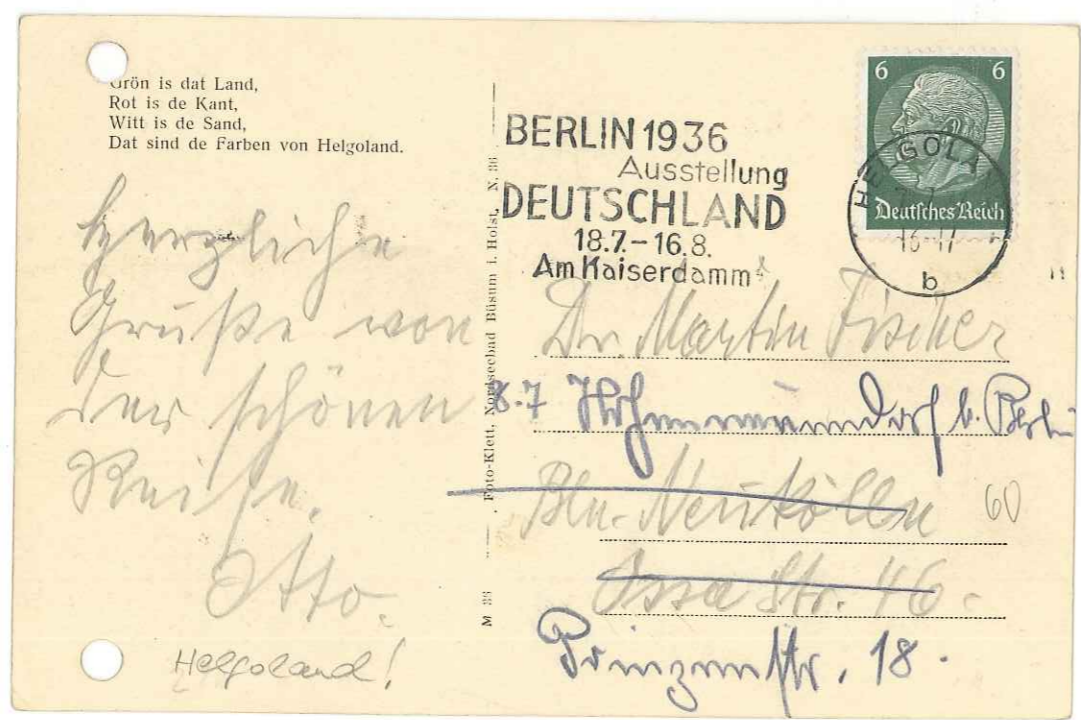 Grön is dat Land,
Rot is de Kant,
Witt is de Sand,
Dat sind de Farben von Helgoland.
Herzliche
Grüße von
der schönen
Reise.
Otto.
Helgoland!
M 36 Foto-Klett, Nordseebad Büsum i. Holst. N. 36
BERLIN 1936
Ausstellung
DEUTSCHLAND
18.7.-16.8.
Am Kaiserdamm
6 6
Deutsches Reich
HELGOLA
16-17
b
Dr. Martin Fischer
8.7 b. Berlin
Bln.-Neukölln
Ossa Str. 46.
Prinzenstr. 18.
60